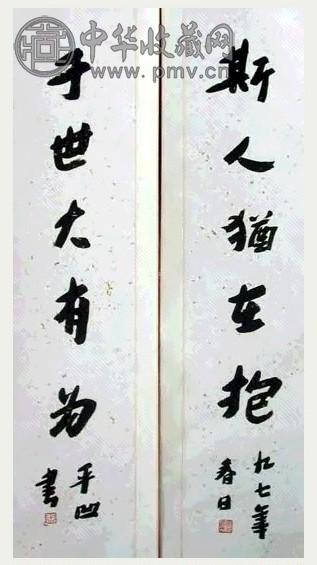 中华收藏网
www.pmv.cn
斯人犹在抱
九七年
春日
于世大有为
平凹
书